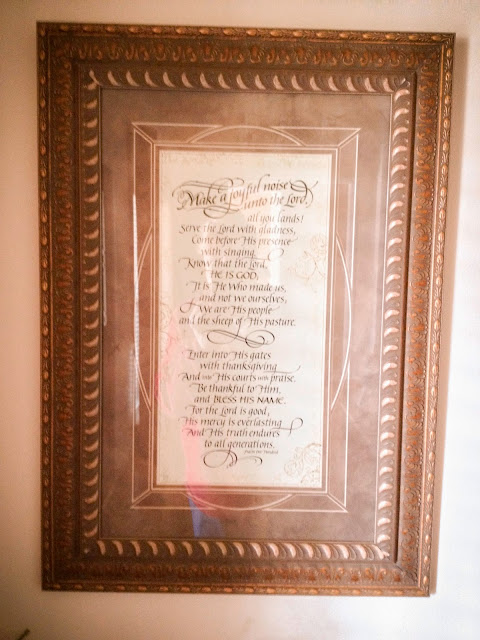 Make a joyful noise
unto the Lord,
all you lands!
Serve the Lord with gladness,
Come before His presence
with singing.
Know that the Lord,
HE IS GOD,
It is He Who made us,
and not we ourselves,
We are His people
and the sheep of His pasture.
Enter into His gates
with thanksgiving
And into His courts with praise.
Be thankful to Him,
and BLESS HIS NAME.
For the Lord is good,
His mercy is everlasting
And His truth endures
to all generations.